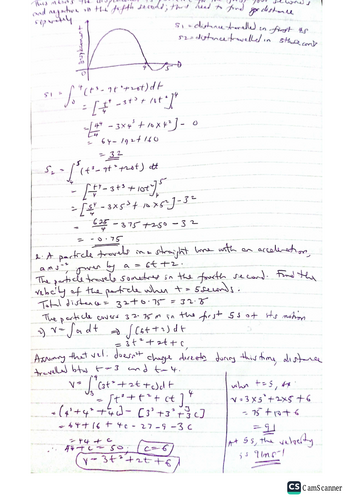 and negative in the fifth second, thus need to find distance
separately
S1 = distance travelled in first 4s
S2 = distance travelled in 5th second
S1 = ∫₀⁴ (t³ - 7t² + 20t) dt
= [t⁴/4 - 3t³ + 10t²]⁴
= [4⁴/4 - 3×4³ + 10×4²] - 0
= 64 - 192 + 160
= 32
S2 = ∫₄⁵ (t³ - 7t² + 20t) dt
= [t⁴/4 - 3t³ + 10t²]⁵
= [5⁴/4 - 3×5³ + 10×5²] - 32
= 625/4 - 375 + 250 - 32
= -0.75
2. A particle travels in a straight line with an acceleration,
a ms⁻² given by a = 6t + 2.
The particle travels 50metres in the fourth second. Find the
velocity of the particle when t = 5seconds.
Total distance = 32 + 0.75 = 32.75
The particle covers 32.75m in the first 5s of its motion
2) v = ∫a dt ⇒ ∫(6t + 2) dt
= 3t² + 2t + c,
Assuming that vel. doesn't change directn during this time, distance
travelled btw t = 3 and t = 4.
V = ∫₃⁴ (3t² + 2t + c) dt
= [t³ + t² + ct]⁴
= (4³ + 4² + 4c) - [3³ + 3² + 3c]
= 64 + 16 + 4c - 27 - 9 - 3c
= 44 + c
∴ 44 + c = 50 ∴ c = 6
V = 3t² + 2t + 6
when t = 5,
V = 3×5² + 2×5 + 6
= 75 + 10 + 6
= 91
At 5s, the velocity
is 91ms⁻¹
CS CamScanner